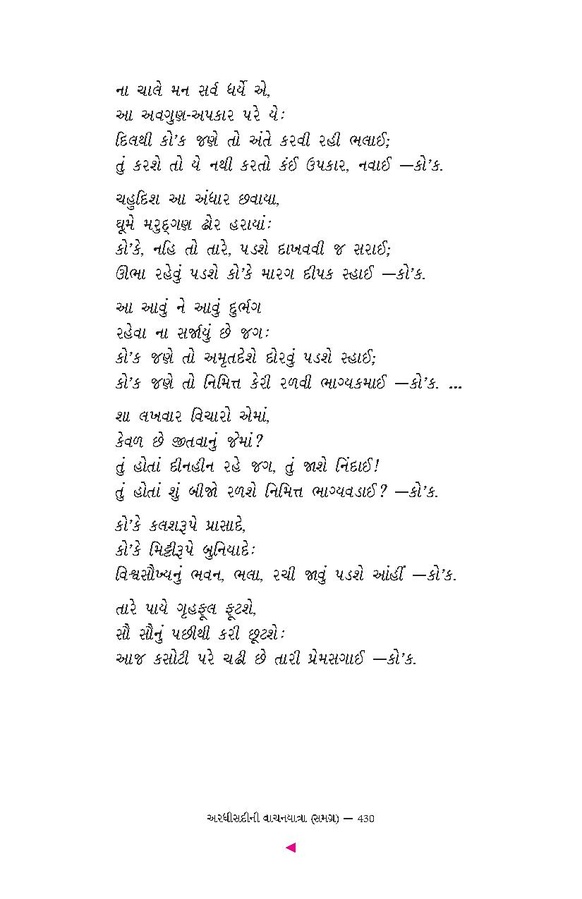 ના ચાલે મન સર્વ ધર્યે એ,
આ અવગુણ-અપકાર પરે યેઃ
દિલથી કો’ક જણે તો અંતે કરવી રહી ભલાઈ;
તું કરશે તો યે નથી કરતો કંઈ ઉપકાર, નવાઈ —કો’ક.
ચહુદિશ આ અંધાર છવાયા,
ઘૂમે મરુદ્ગણ ઢોર હરાયાંઃ
કો’કે, નહિ તો તારે, પડશે દાખવવી જ સરાઈ;
ઊભા રહેવું પડશે કો’કે મારગ દીપક સ્હાઈ —કો’ક.
આ આવું ને આવું દુર્ભગ
રહેવા ના સર્જાયું છે જગઃ
કો’ક જણે તો અમૃતદેશે દોરવું પડશે સ્હાઈ;
કો’ક જણે તો નિમિત્ત કેરી રળવી ભાગ્યકમાઈ —કો’ક. ...
શા લખવાર વિચારો એમાં,
કેવળ છે જીતવાનું જેમાં?
તું હોતાં દીનહીન રહે જગ, તું જાશે નિંદાઈ!
તું હોતાં શું બીજો રળશે નિમિત્ત ભાગ્યવડાઈ? —કો’ક.
કો’કે કલશરૂપે પ્રાસાદે,
કો’કે મિટ્ટીરૂપે બુનિયાદેઃ
વિશ્વસૌખ્યનું ભવન, ભલા, રચી જાવું પડશે આંહીં —કો’ક.
તારે પાયે ગૃહફૂલ ફૂટશે,
સૌ સૌનું પછીથી કરી છૂટશેઃ
આજ કસોટી પરે ચઢી છે તારી પ્રેમસગાઈ —કો’ક.
અરધીસદીની વાચનયાત્રા (સમગ્ર) — 430